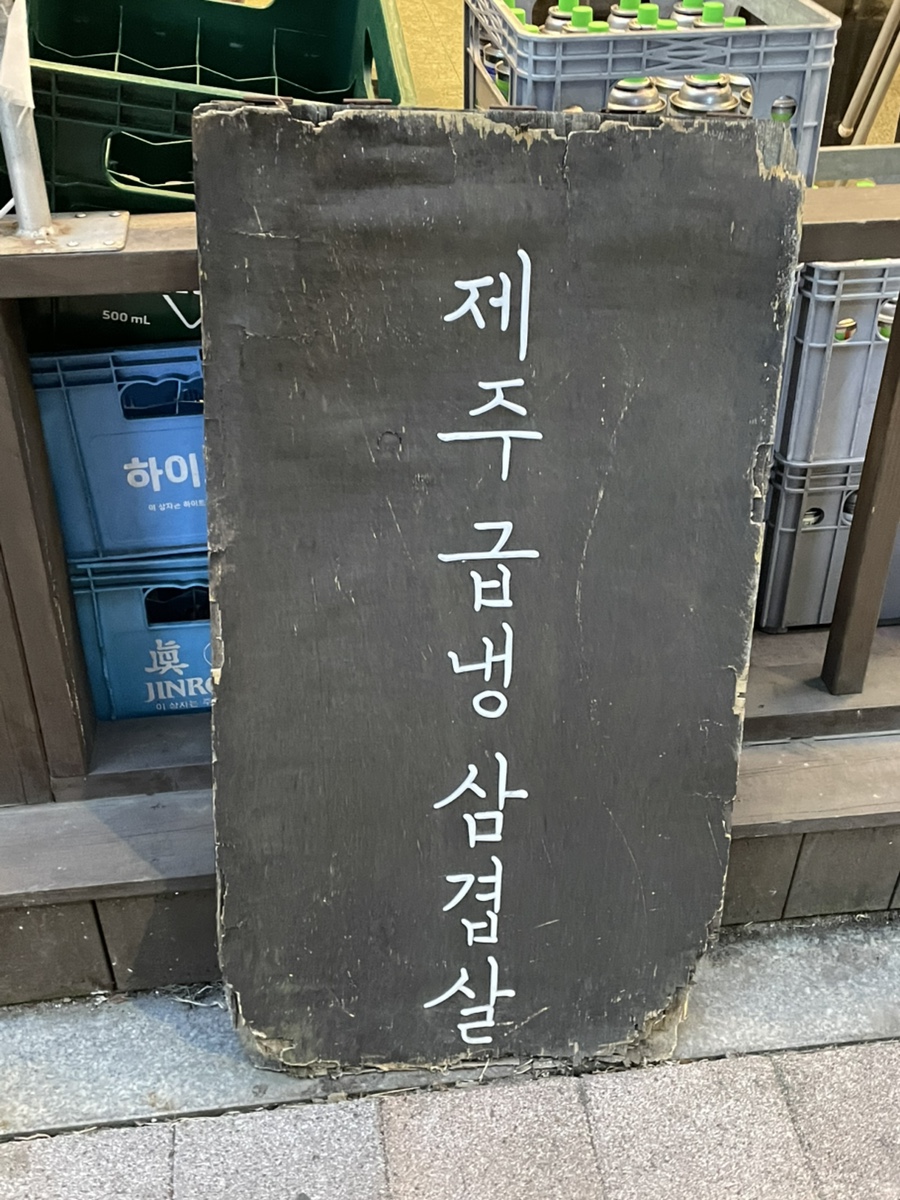 제주 급냉 삼겹살
500 mL
하이
이 상자는 하이트
眞
JINRO
이 상자는 주